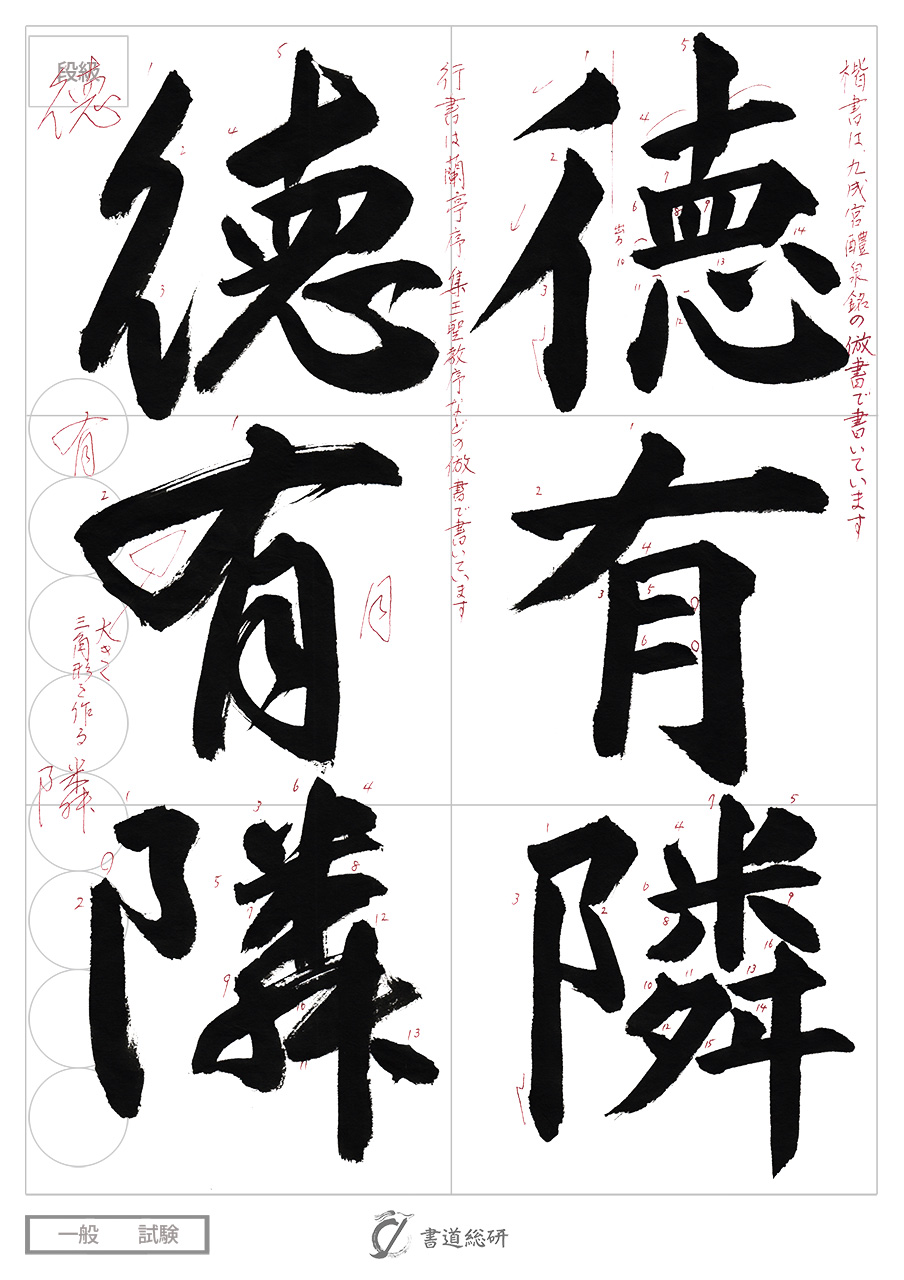 楷書は、九成宮醴泉銘の倣書で書いています
徳有隣
行書は蘭亭序、集王聖教序などの倣書で書いています
徳有隣
月
段級
徳
有
大きく
三角形を作る
隣
一般 試験
書道総研